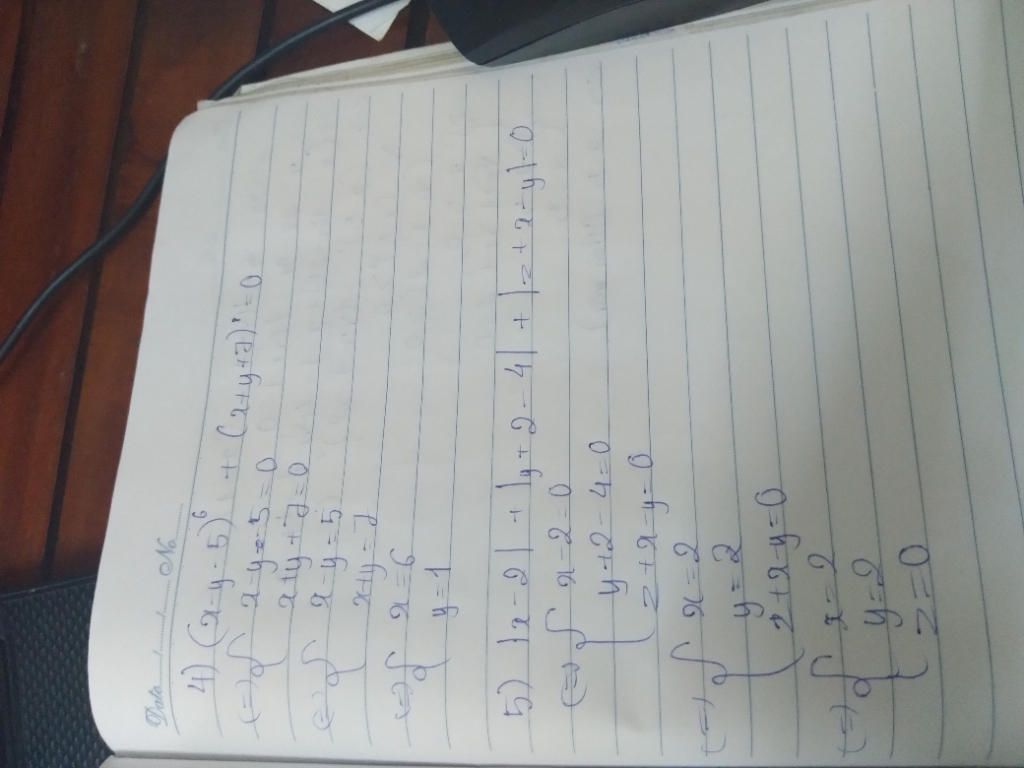 Date ...../...../..... No.
4) (x-y-5)⁶ + (x+y+7)⁸=0
(=) { x-y-5=0
x+y+7=0
(=) { x-y=5
x+y=7
(=) { x=6
y=1
5) |x-2| + |y+2-4| + |z+x-y|=0
(=) { x-2=0
y+2-4=0
z+x-y=0
(=) { x=2
y=2
z+x-y=0
(=) { x=2
y=2
z=0